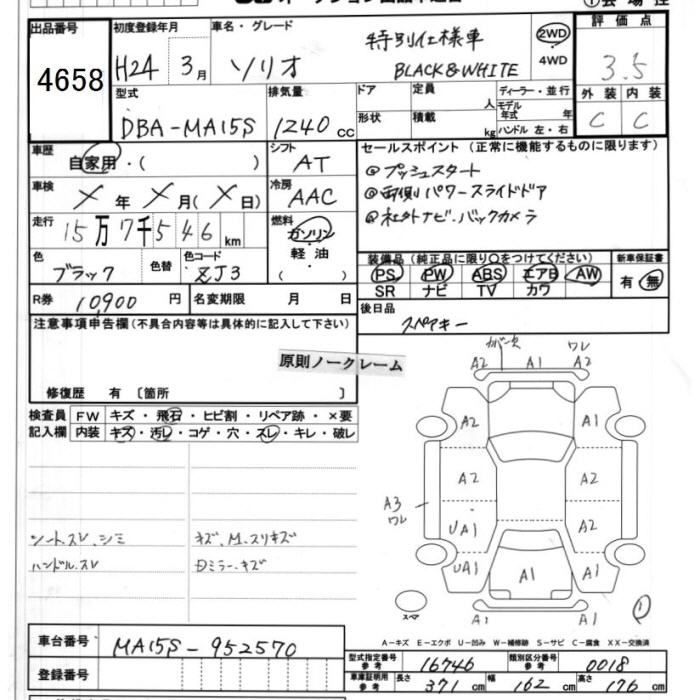 ① 会 場 控
出品番号
4658
初度登録年月
H24 3月
車名・グレード
ソリオ
特別仕様車
BLACK&WHITE
2WD
4WD
評価点
3.5
外装 内装
C C
型式
DBA-MA15S
排気量
1240 cc
ドア
形状
定員 人
積載 kg
ディーラー・並行
モデル年式 年
ハンドル 左・右
車歴
自家用・( )
シフト
AT
セールスポイント (正常に機能するものに限ります)
◎プッシュスタート
◎両側パワースライドドア
◎社外ナビ.バックカメラ
車検
×年×月(×日)
冷房
AAC
走行
15万7千546km
燃料
ガソリン
軽油
( )
色
ブラック
色替
色コード
ZJ3
装備品(純正品に限り○をつけてください)
PS PW ABS エアB AW
SR ナビ TV カワ
新車保証書
有・無
R券 10,900 円
名変期限 月 日
後日品
スペアキー
注意事項申告欄(不具合内容等は具体的に記入して下さい)
原則ノークレーム
修復歴 有 〔箇所 〕
検査員記入欄
FW キズ・飛石・ヒビ割・リペア跡・×要
内装 キズ・汚レ・コゲ・穴・スレ・キレ・破レ
シート.スレ.シミ
ハンドル.スレ
キズ.M.スリキズ
Dミラー.キズ
ワレ
A2 A1 A2
A2 A1
A2 A2
A3
ワレ
UA1 A2
UA1 A1 A1
A1 A1
スペア
①
A-キズ E-エクボ U-凹み W-補修跡 S-サビ C-腐食 XX-交換済
車台番号
MA15S-952570
登録番号
型式指定番号 参考 16746
類別区分番号 参考 0018
車庫証明用 参考 長さ 371cm 幅 162cm 高さ 176cm